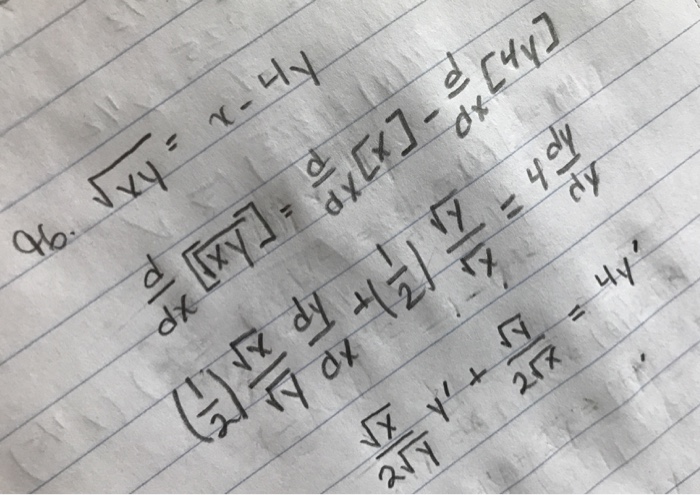 9b. √xy = x - 4y
d/dx [√xy] = d/dx [x] - d/dx [4y]
(1/2) √x/√y dy/dx + (1/2) √y/√x = 4 dy/dy
√x/2√y y' + √y/2√x = 4y'